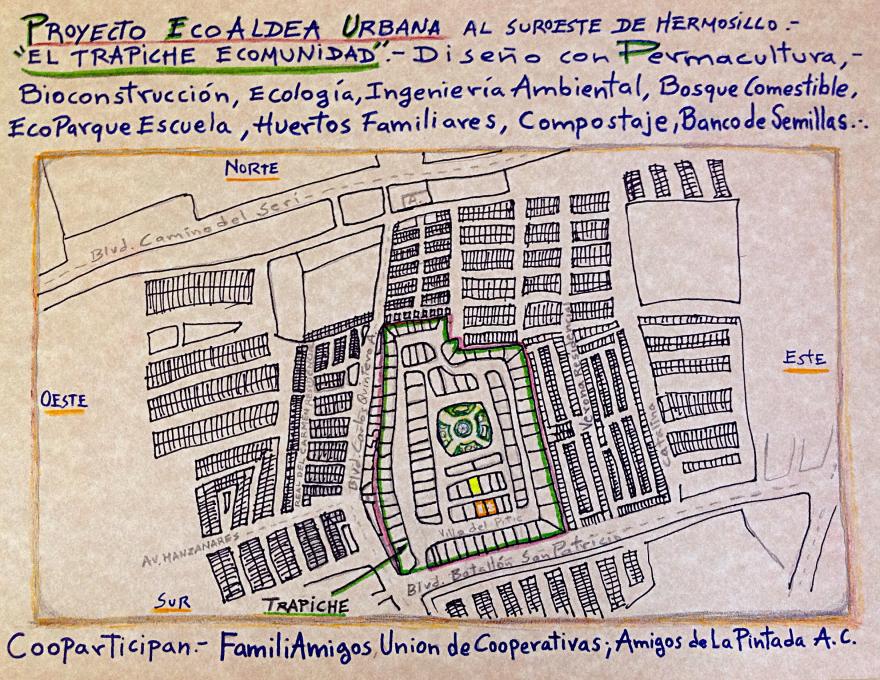 PROYECTO ECOALDEA URBANA AL SUROESTE DE HERMOSILLO.-
"EL TRAPICHE ECOMUNIDAD".- Diseño con Permacultura,-
Bioconstrucción, Ecología, Ingeniería Ambiental, Bosque Comestible,
EcoParque Escuela, Huertos Familiares, Compostaje, Banco de Semillas.-.
NORTE
Blvd. Camino del Seri
A.
ESTE
OESTE
REAL DEL CARMEN RESIDENCIAL
Blvd. Carlos Quintero A.
Verona Residencial
Villa del Pitic
AV. MANZANARES
Blvd. Batallón San Patricio
SUR
TRAPICHE
CooparTicipan.- FamiliAmigos, Union de Cooperativas; Amigos de La Pintada A.C.